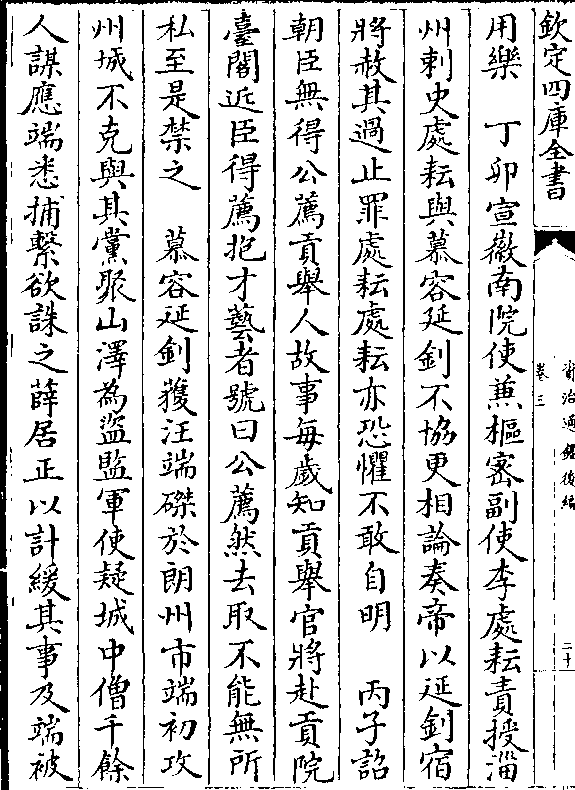 欽定四庫全書
資治通鑑後編
卷三
二十
用樂　丁卯宣徽南院使兼樞密副使李處耘責授淄
州刺史處耘與慕容延釗不協更相論奏帝以延釗宿
將赦其過止罪處耘處耘亦恐懼不敢自明　丙子詔
朝臣無得公薦貢舉人故事每歲知貢舉官將赴貢院
臺閣近臣得薦抱才藝者號曰公薦然去取不能無所
私至是禁之　慕容延釗獲汪端磔於朗州市端初攻
州城不克與其黨聚山澤為盜監軍使疑城中僧千餘
人謀應端悉捕繫欲誅之薛居正以計緩其事及端被